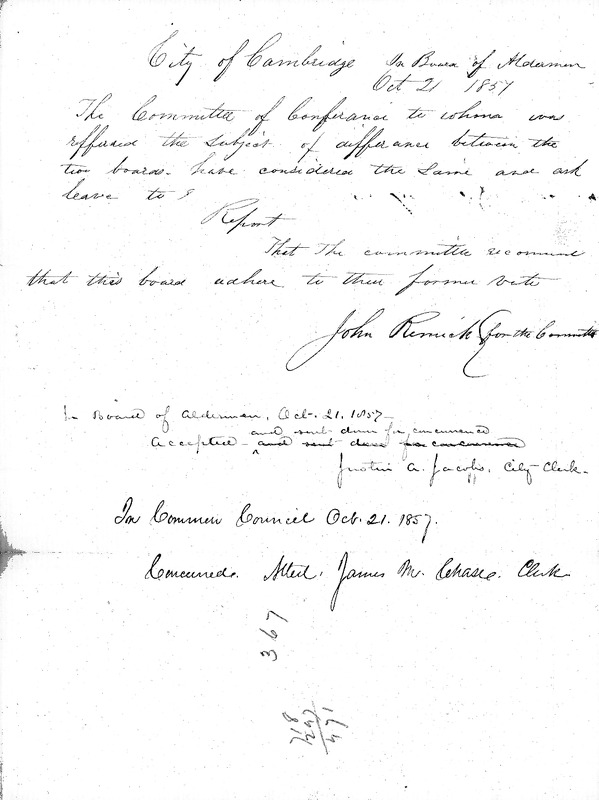 City of Cambridge In Board of Aldermen
Oct 21 1857
The Committee of Conferance to whome was
refferred the subject of differance between the
two boards have considered the same and ask
leave to
Report
That the committee recommend
that this board adhere to their former vote
John Remick for the Committee
In Board of Aldermen, Oct. 21, 1857
and sent down for concurrence
Accepted - and sent down for concurrence
Justin A. Jacobs, City Clerk.
In Common Council Oct. 21. 1857.
Concurred. Attest, James M. Chase. Clerk
367
718
247
471